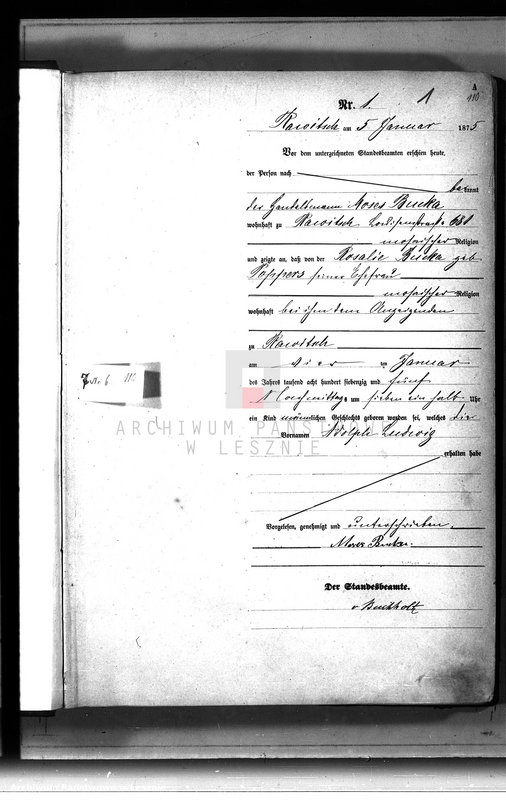 A
110
Nr. 1.
1
Rawitsch am 5 Januar 1875
Vor dem unterzeichneten Standesbeamten erschien heute,
der Person nach
bekannt
der Handelsmann Moses
wohnhaft zu Rawitsch
mosaischer Religion
und zeigte an, daß von der Rosalie geb.
Poppers seiner Ehefrau
mosaischer Religion
wohnhaft bei ihm dem Anzeigenden
zu Rawitsch
am vier ten Januar
des Jahres tausend acht hundert siebenzig und fünf
Nachmittags um sieben ein halb Uhr
ein Kind männlichen Geschlechts geboren worden sei, welches die
Vornamen Adolph Ludwig
erhalten habe
Vorgelesen, genehmigt und unterschrieben.
Moses
Der Standesbeamte.
No 6 110
ARCHIWUM PAŃSTWOWE
W LESZNIE